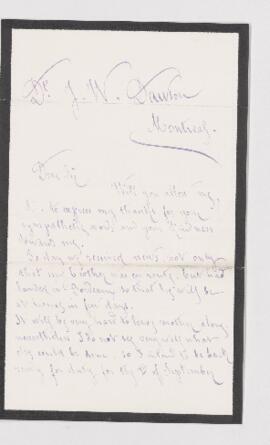 Dr. J. W. Dawson
Montreal.
Dear Sir
Will you allow me,
to express my thanks for your
sympathetic words and your kindness
towards me.
To day we received news, not only
that my brother was on
landed at Bordeaux so that he will be
at home in few days.
It will be very hard to leave mother alone
nevertheless I do not see very well what
else could be done, so I intend to be back
ready for duty for the of September